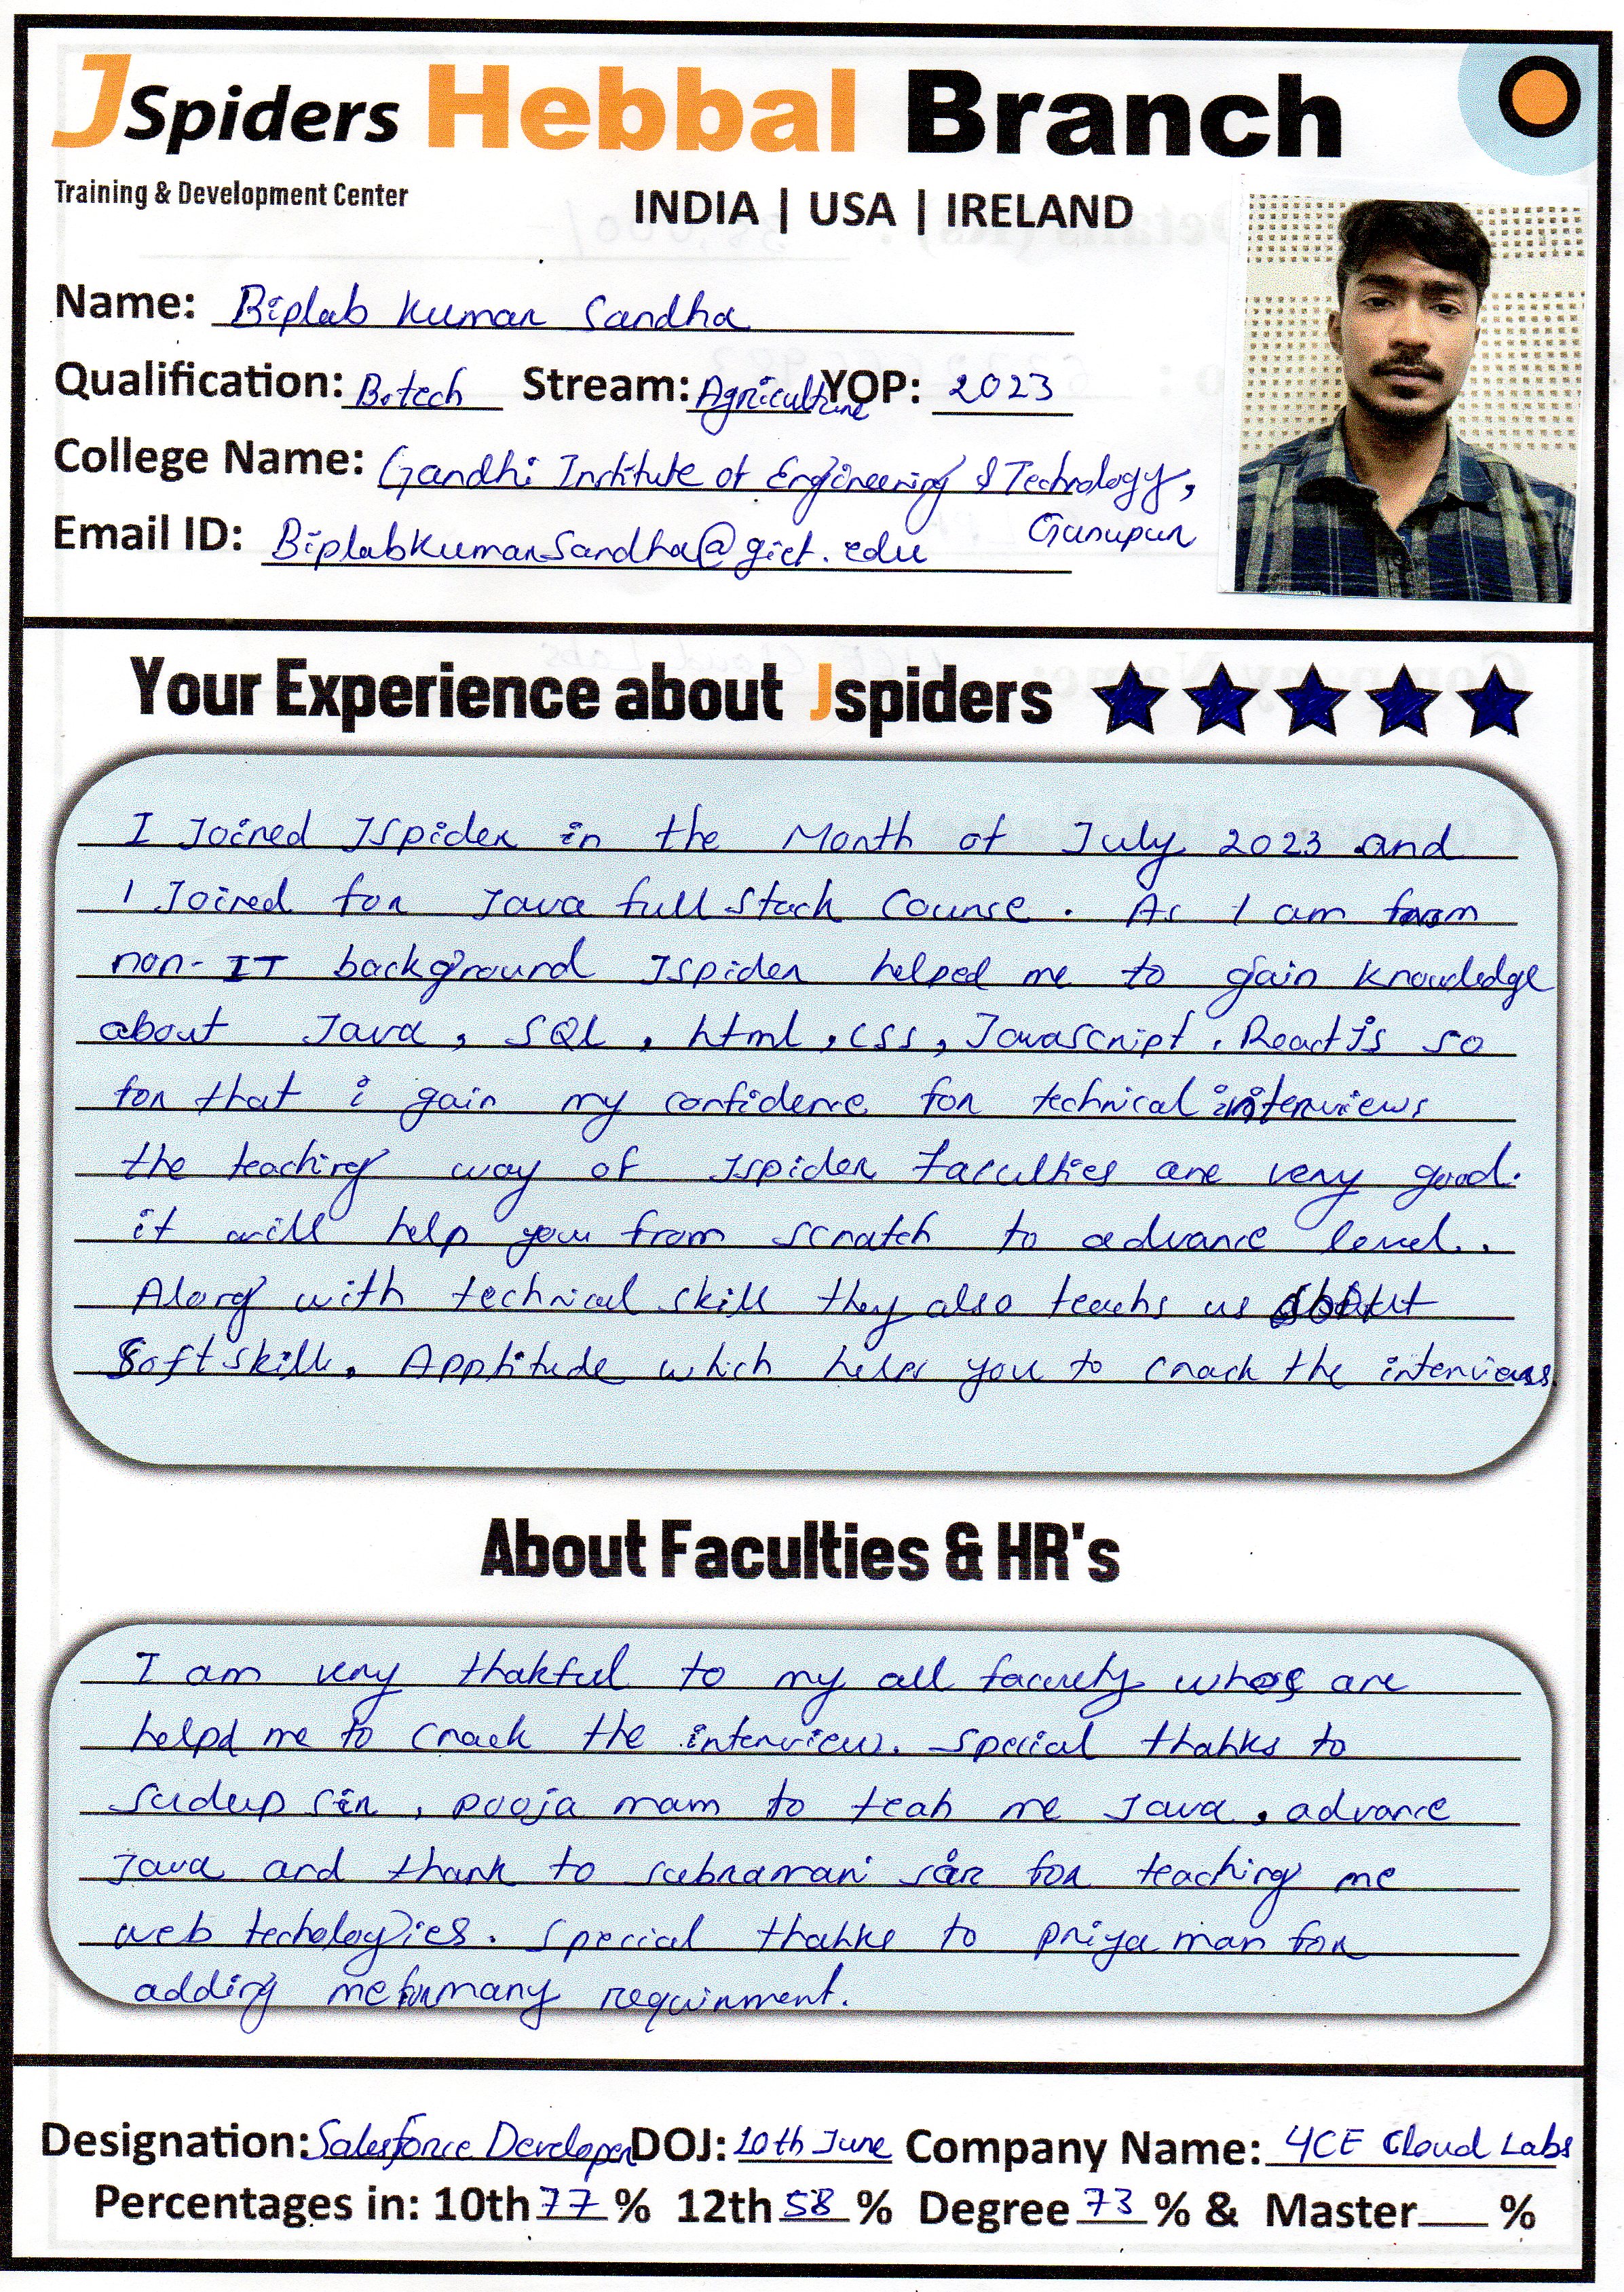 JSpiders Hebbal Branch
Training & Development Center
INDIA | USA | IRELAND
Name: Biplab Kumar Sandha
Qualification: B.tech Stream: Agriculture YOP: 2023
College Name: Gandhi Institute of Engineering & Technology,
Gunupur
Email ID: Biplabkumarsandha@giet.edu
Your Experience about Jspiders
I Joined JSpider in the Month of July 2023 and
I Joined for Java full Stack Course. As I am from
non-IT background Jspider helped me to gain knowledge
about Java, SQL, html, CSS, Javascript, React js so
for that i gain my confidence for technical interviews
the teaching way of Jspider faculties are very good.
it will help you from scratch to advance level..
Along with technical skill they also teachs us about
Soft skill, Apptitude which helps you to crack the interviews.
About Faculties & HR's
I am very thakful to my all faculty whose are
helpd me to crack the interview. Special thahks to
sir, pooja mam to teah me Java, advance
Java and thank to subramani sir for teaching me
web techologies. Special thahks to priya mam for
adding me for many requirnment.
Designation: Salesforce Developer DOJ: 10th June Company Name: 4CE Cloud Labs
Percentages in: 10th 77 % 12th 58 % Degree 73 % & Master %